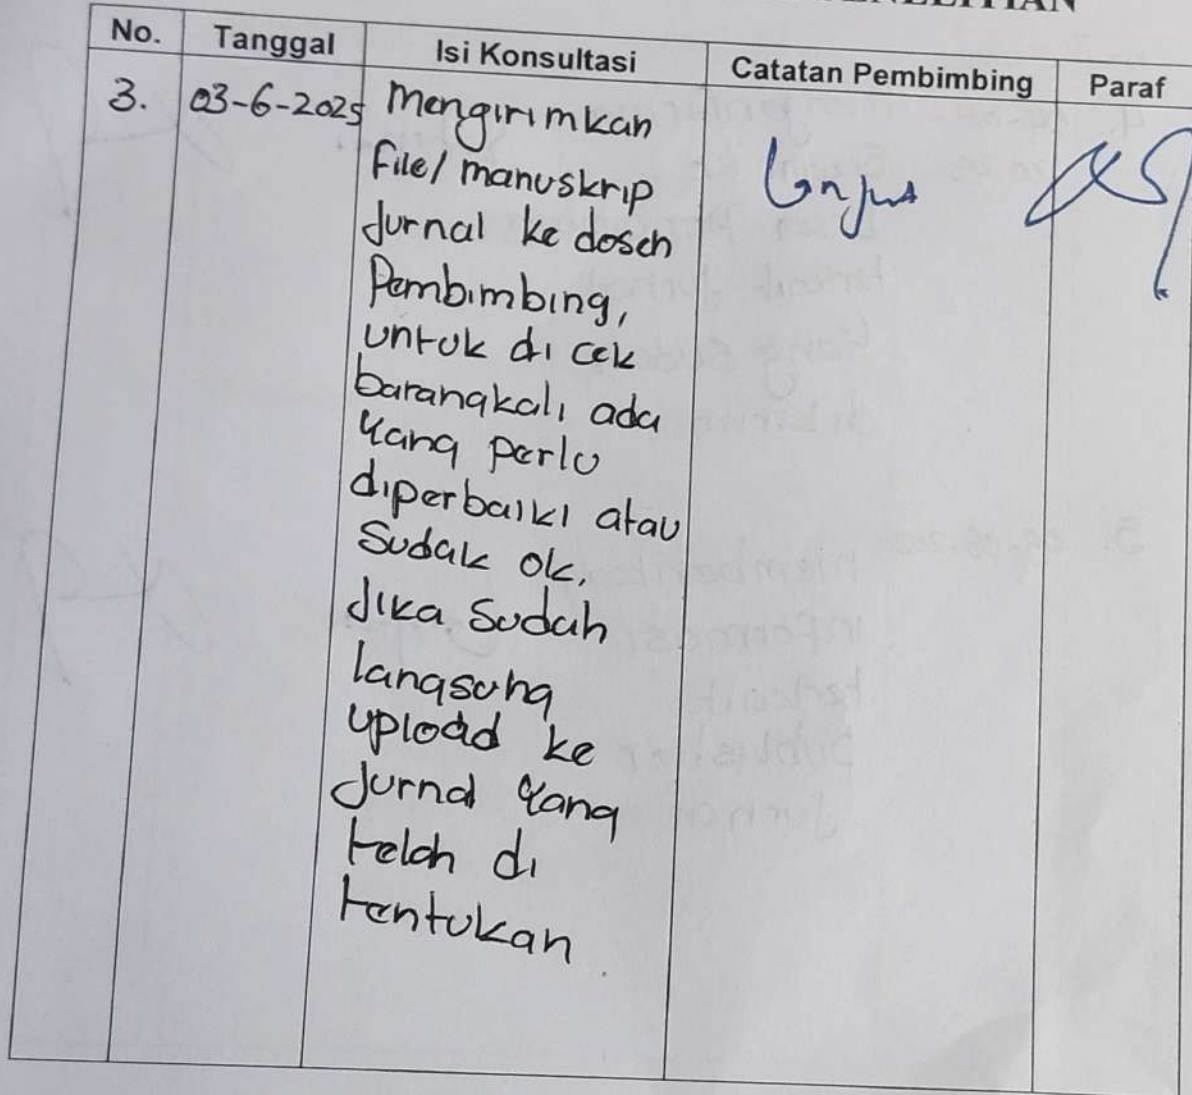 No. Tanggal Isi Konsultasi Catatan Pembimbing Paraf
3. 03-6-2025 Mengirimkan
File/ manuskrip
Jurnal ke dosen
Pembimbing,
untuk di cek
barangkali ada
yang perlu
diperbaiki atau
Sudak ok,
Jika Sudah
langsung
upload ke
Jurnal yang
telah di
tentukan
Lanjut